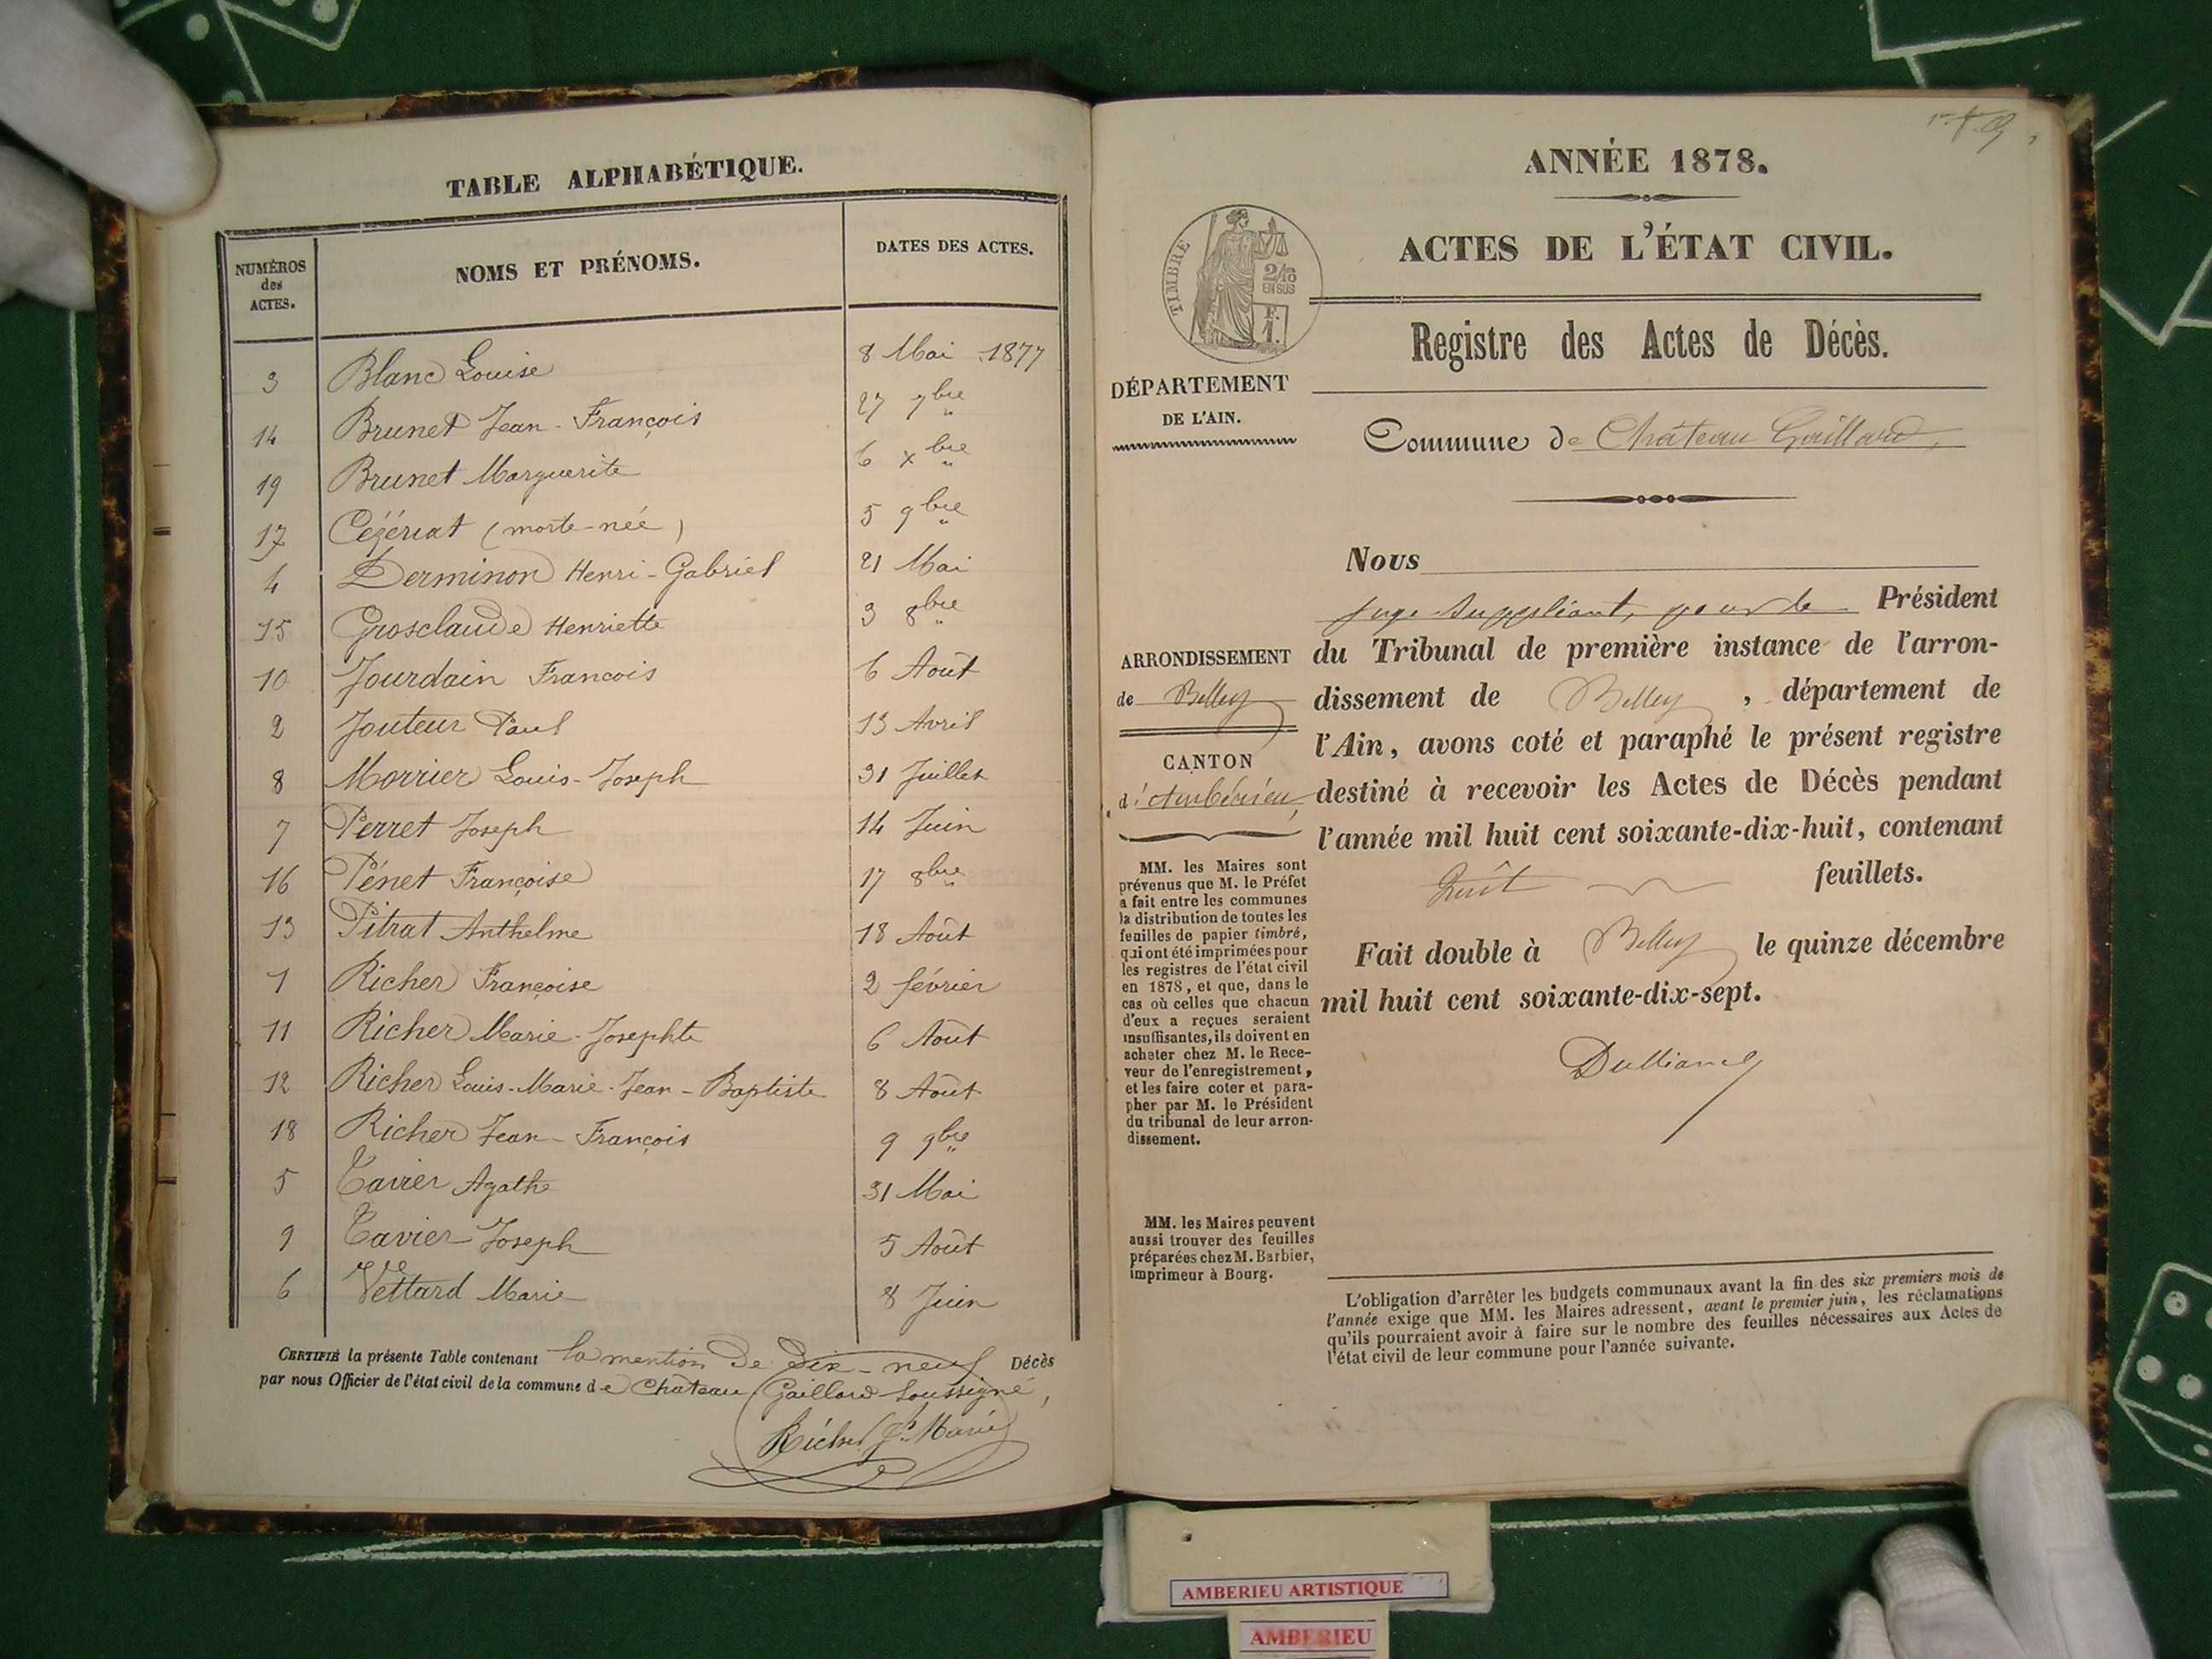 TABLE ALPHABÉTIQUE.
NUMÉROS des ACTES. NOMS ET PRÉNOMS. DATES DES ACTES.
3 Blanc Louise 8 Mai 1877
14 Brunet Jean-François 27 7bre "
19 Brunet Marguerite 6 xbre "
17 Cézériat (morte-née) 5 9bre "
4 Derminon Henri-Gabriel 21 Mai
15 Grosclaude Henriette 3 8bre "
10 Jourdain Francois 6 Août
2 Jouteur Paul 13 Avril
8 Morrier Louis-Joseph 31 Juillet
7 Perret Joseph 14 Juin
16 Pénet Françoise 17 8bre "
13 Pitrat Anthelme 18 Août
1 Richer Françoise 2 février
11 Richer Marie-Josephte 6 Août
12 Richer Louis-Marie-Jean-Baptiste 8 Août
18 Richer Jean-François 9 9bre "
5 Tavier Agathe 31 Mai
9 Tavier Joseph 5 Août
6 Vettard Marie 8 Juin
CERTIFIÉ la présente Table contenant la mention de dix-neuf Décès
par nous Officier de l'état civil de la commune de Château Gaillard Soussigné,
ANNÉE 1878.
ACTES DE L'ÉTAT CIVIL.
TIMBRE
2/10
EN SUS
F.
1.
Registre des Actes de Décès.
DÉPARTEMENT
DE L'AIN.
Commune de Château Gaillard,
Nous
juge suppléant, pour le Président
du Tribunal de première instance de l'arron-
dissement de Belley, département de
l'Ain, avons coté et paraphé le présent registre
destiné à recevoir les Actes de Décès pendant
l'année mil huit cent soixante-dix-huit, contenant
huit feuillets.
Fait double à Belley le quinze décembre
mil huit cent soixante-dix-sept.
ARRONDISSEMENT
de Belley
CANTON
d'Ambérieu,
MM. les Maires sont
prévenus que M. le Préfet
a fait entre les communes
la distribution de toutes les
feuilles de papier timbré,
qui ont été imprimées pour
les registres de l'état civil
en 1878, et que, dans le
cas où celles que chacun
d'eux a reçues seraient
insuffisantes, ils doivent en
acheter chez M. le Rece-
veur de l'enregistrement,
et les faire coter et para-
pher par M. le Président
du tribunal de leur arron-
dissement.
MM. les Maires peuvent
aussi trouver des feuilles
préparées chez M. Barbier,
imprimeur à Bourg.
L'obligation d'arrêter les budgets communaux avant la fin des six premiers mois de
l'année exige que MM. les Maires adressent, avant le premier juin, les réclamations
qu'ils pourraient avoir à faire sur le nombre des feuilles nécessaires aux Actes de
l'état civil de leur commune pour l'année suivante.
AMBERIEU ARTISTIQUE
AMBERIEU